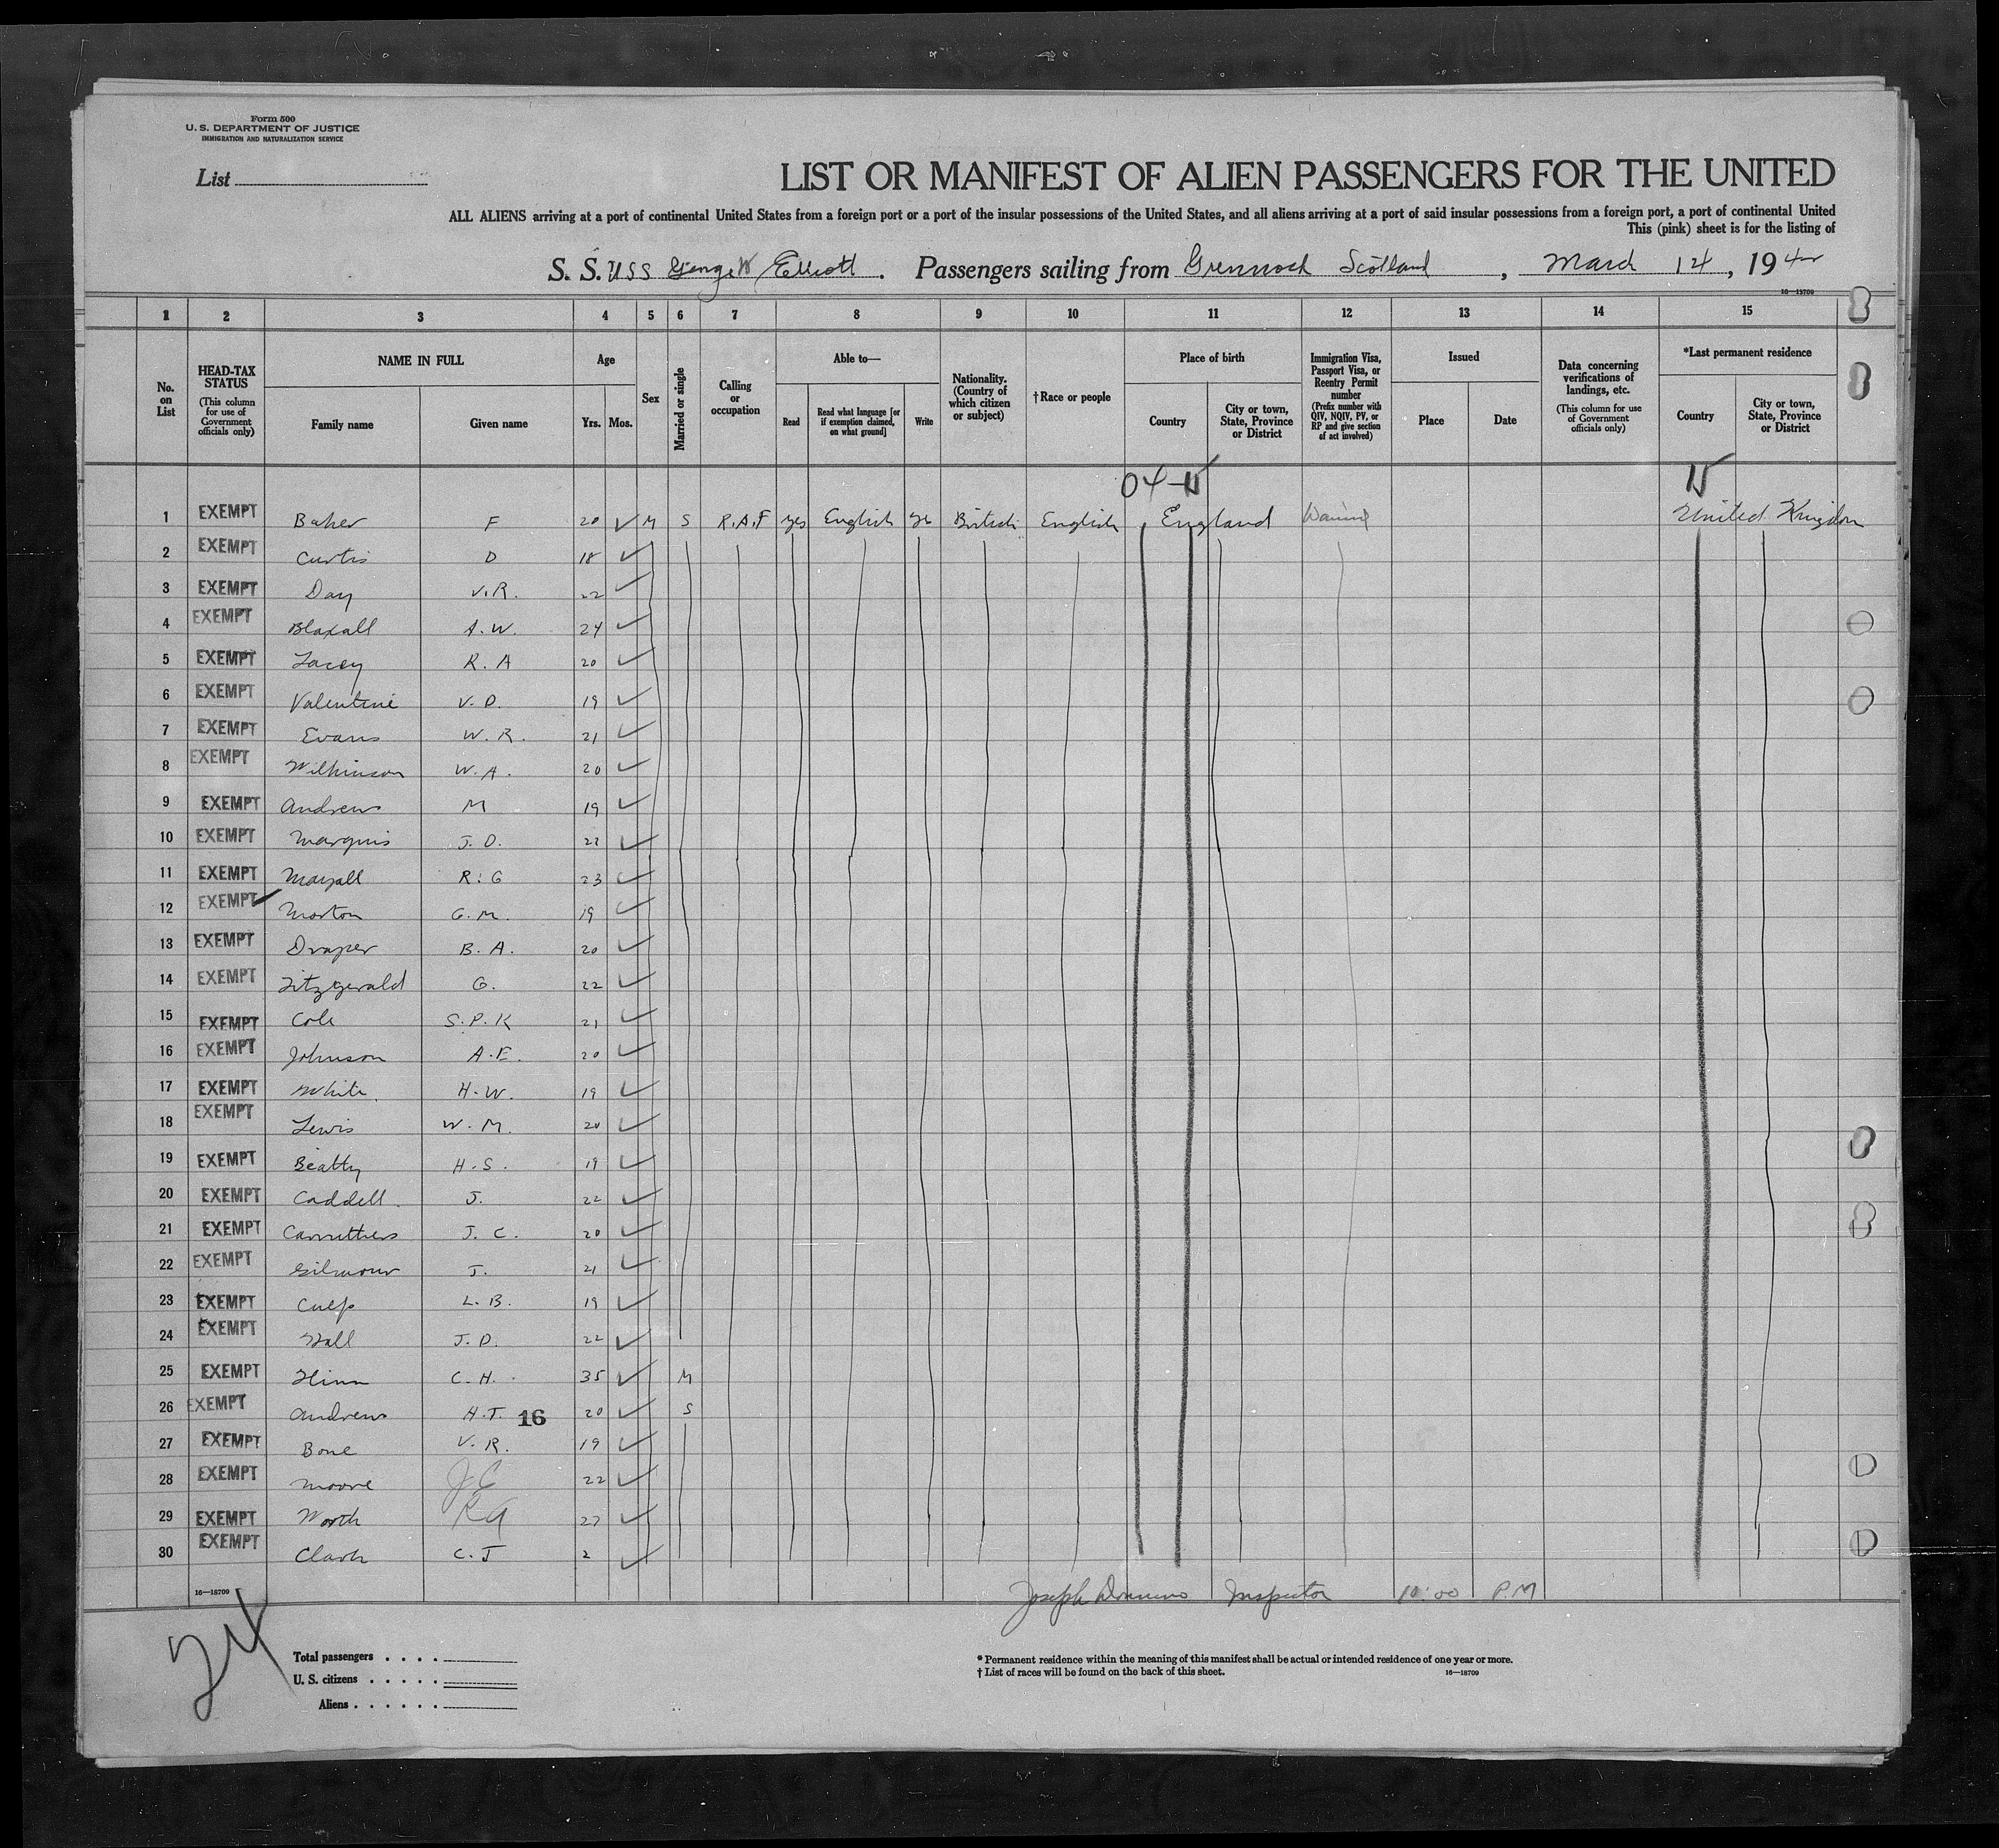 Form 500
U. S. DEPARTMENT OF JUSTICE
IMMIGRATION AND NATURALIZATION SERVICE
List
LIST OR MANIFEST OF ALIEN PASSENGERS FOR THE UNITED
ALL ALIENS arriving at a port of continental United States from a foreign port or a port of the insular possessions of the United States, and all aliens arriving at a port of said insular possessions from a foreign port, a port of continental United
This (pink) sheet is for the listing of
S. S. USS George W Elliott . Passengers sailing from Greenock Scotland , March 14 , 19 42
16—18709
1 2 3 4 5 6 7 8 9 10 11 12 13 14 15
No. on List
HEAD-TAX STATUS (This column for use of Government officials only)
NAME IN FULL
Family name Given name
Age
Yrs. Mos.
Sex
Married or single
Calling or occupation
Able to—
Read Read what language [or if exemption claimed, on what ground] Write
Nationality. (Country of which citizen or subject)
† Race or people
Place of birth
Country City or town, State, Province or District
Immigration Visa, Passport Visa, or Reentry Permit number (Prefix number with QIV, NQIV, PV, or RP and give section of act involved)
Issued
Place Date
Data concerning verifications of landings, etc. (This column for use of Government officials only)
*Last permanent residence
Country City or town, State, Province or District
1 EXEMPT Baker F 20 M S R.A.F yes English yes British English England Waived United Kingdom
2 EXEMPT Curtis D 18
3 EXEMPT Day V.R. 22
4 EXEMPT Blaxall A.W. 24
5 EXEMPT Lacey R.A 20
6 EXEMPT Valentine V.D. 19
7 EXEMPT Evans W.R. 21
8 EXEMPT Wilkinson W.A. 20
9 EXEMPT Andrews M 19
10 EXEMPT Marquis J.D.
11 EXEMPT Mayall R.G 23
12 EXEMPT Morton G.M. 19
13 EXEMPT Draper B.A. 20
14 EXEMPT Fitzgerald G. 22
15 EXEMPT Cole S.P.K 21
16 EXEMPT Johnson A.E. 20
17 EXEMPT White H.W. 19
18 EXEMPT Lewis W.M. 20
19 EXEMPT Beatty H.S. 19
20 EXEMPT Caddell J. 22
21 EXEMPT Carruthers J.C. 20
22 EXEMPT Gilmour J. 21
23 EXEMPT Culp L.B. 19
24 EXEMPT Hall J.D. 22
25 EXEMPT C.H. 35 M
26 EXEMPT Andrews H.T. 16 20 S
27 EXEMPT Bone V.R. 19
28 EXEMPT Moore 22
29 EXEMPT Worth
30 EXEMPT Clark C.J 2
16—18709
Joseph Inspector 10:00 P.M
24
Total passengers
U. S. citizens
Aliens
* Permanent residence within the meaning of this manifest shall be actual or intended residence of one year or more.
† List of races will be found on the back of this sheet. 16—18709